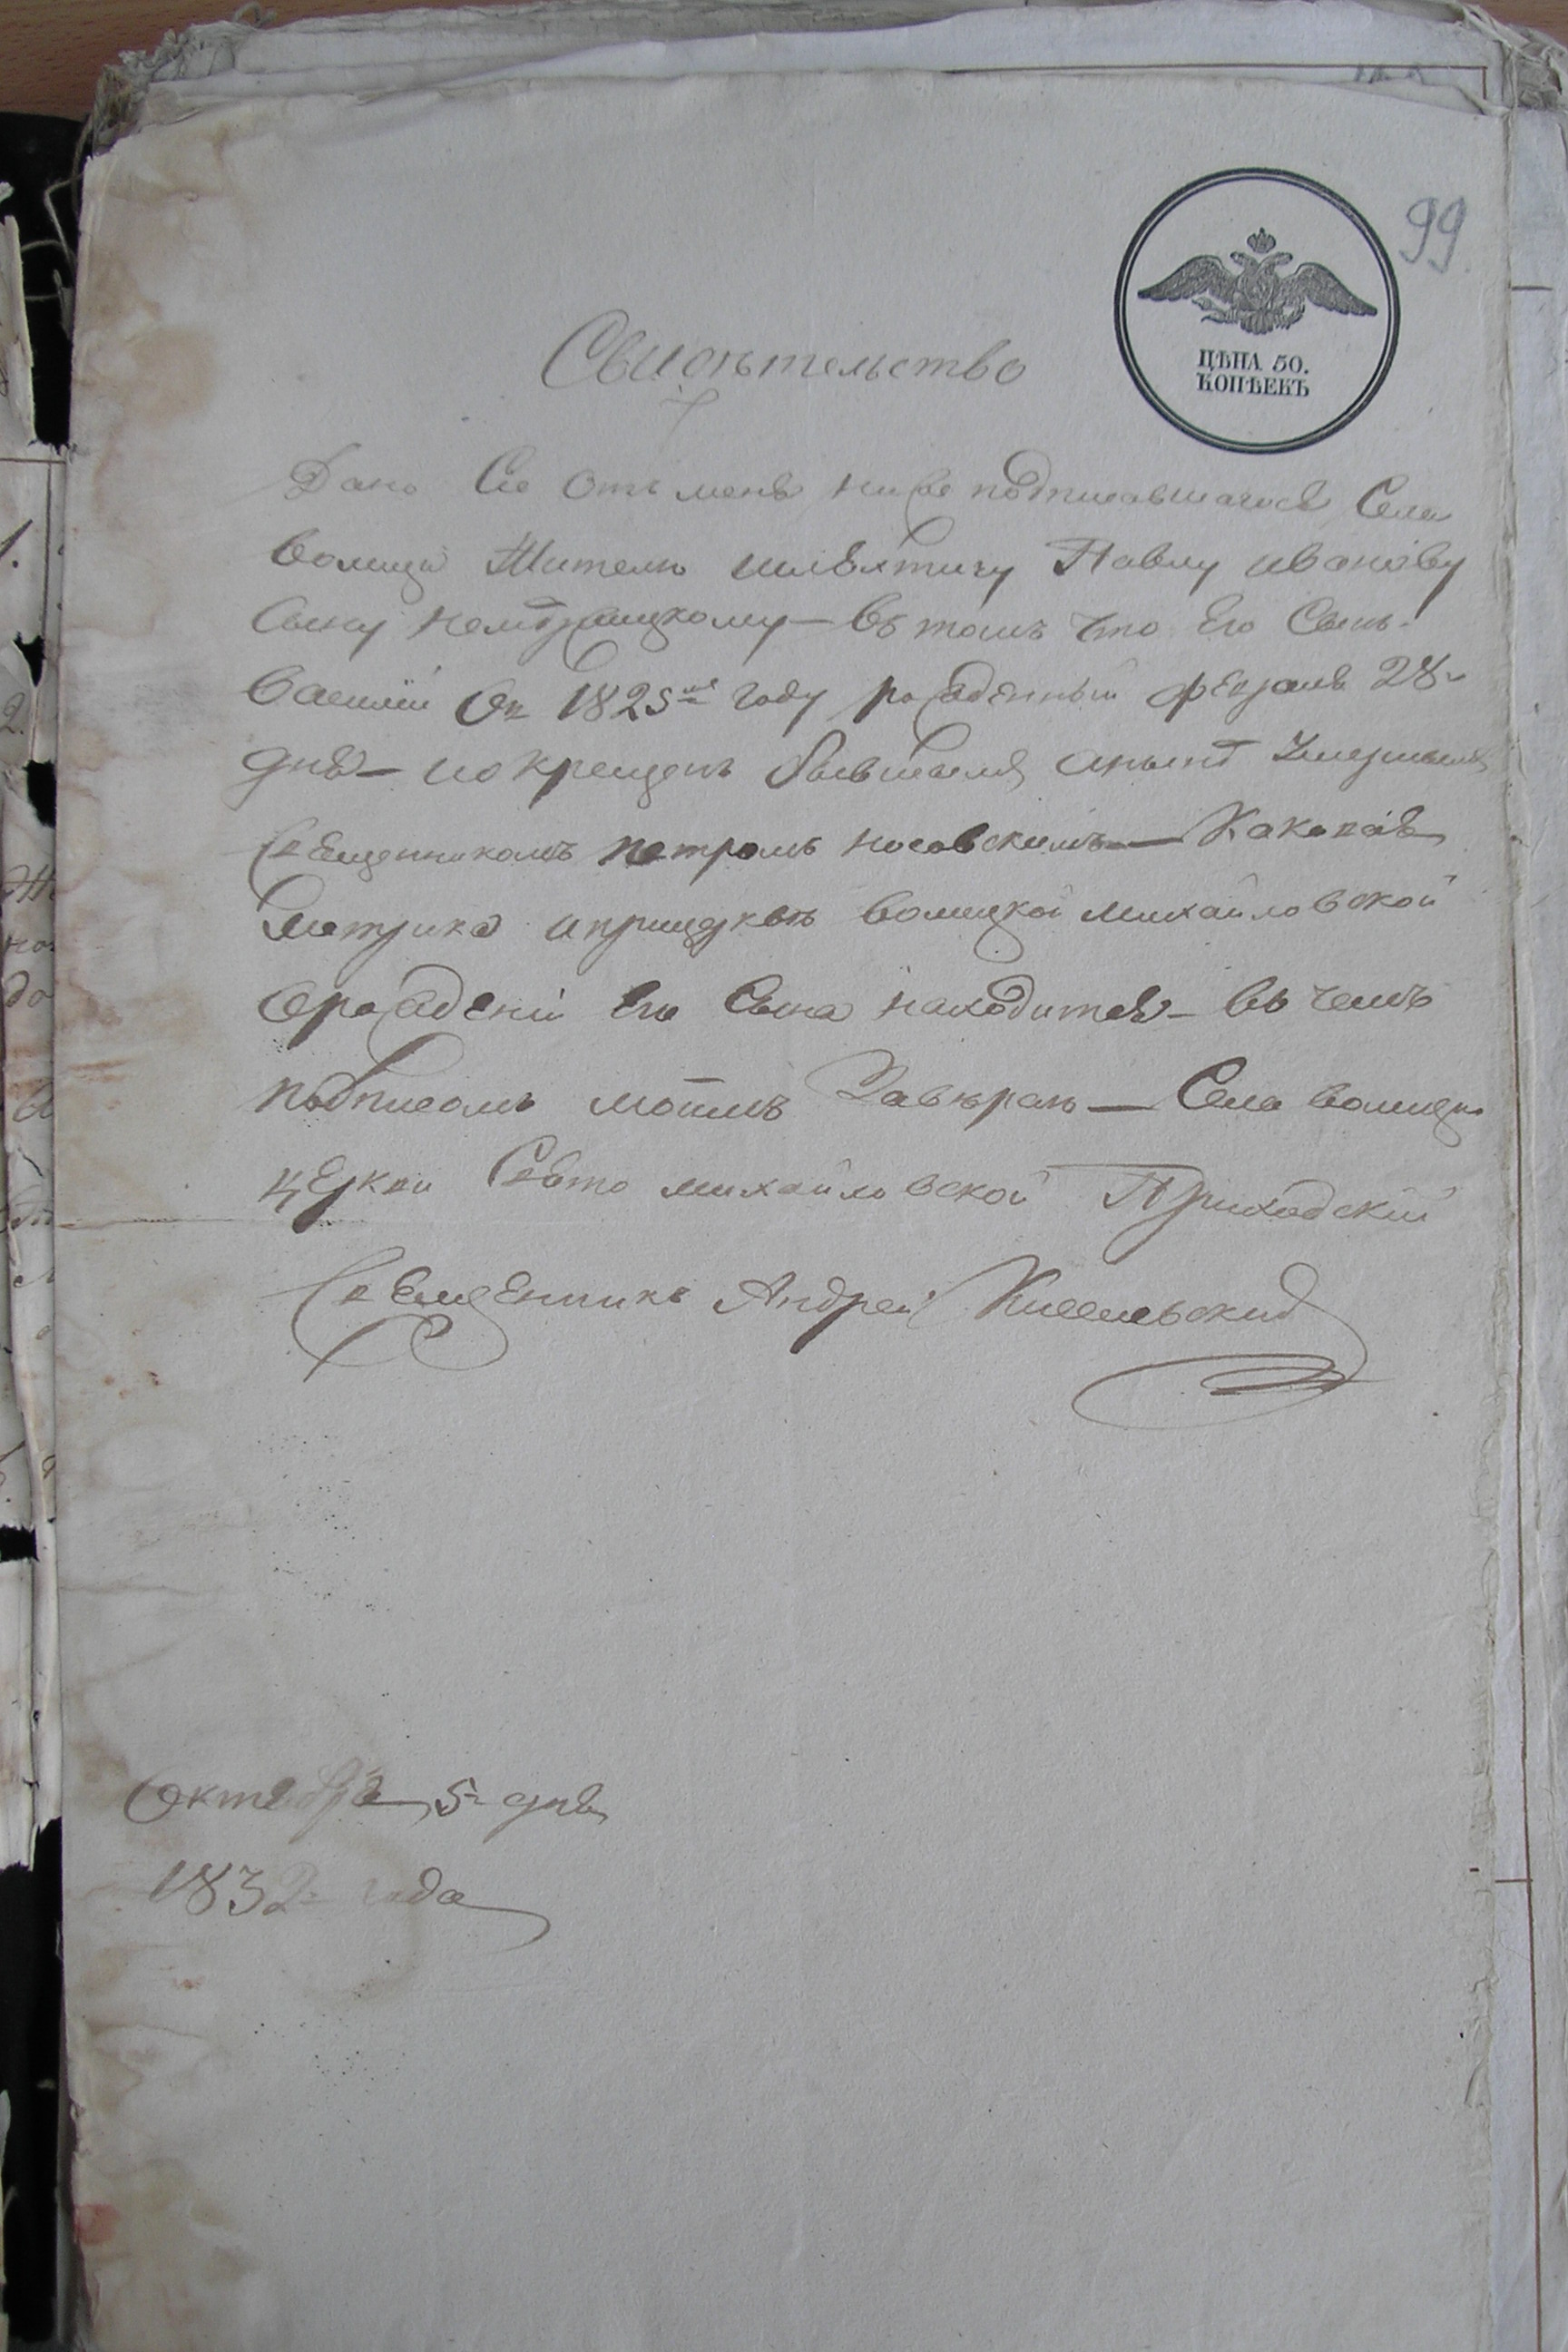 99
ЦѢНА 50.
КОПѢЕКЪ
Свидѣтельство
Дано Сіе Отъ меня ниже подписавшагося Села
Волицы Жителю шляхтичу Павлу Иванову
Сыну — въ томъ что Его Сынъ
Василій Онъ 1825 году рожденный февраля 28
дня — и окрещенъ бывшимъ а нынѣ Умершимъ
Священникомъ петромъ носовскимъ — Каковая
Метрика и прицеркви волицкой михайловской
орождении Его Сына находится — въ чемъ
подписомъ моимъ Завѣряю — Села волицы
церкви Свято михайловской Приходскій
Священникъ Андрей Кисельскій
Октября 5 дня
1832 года